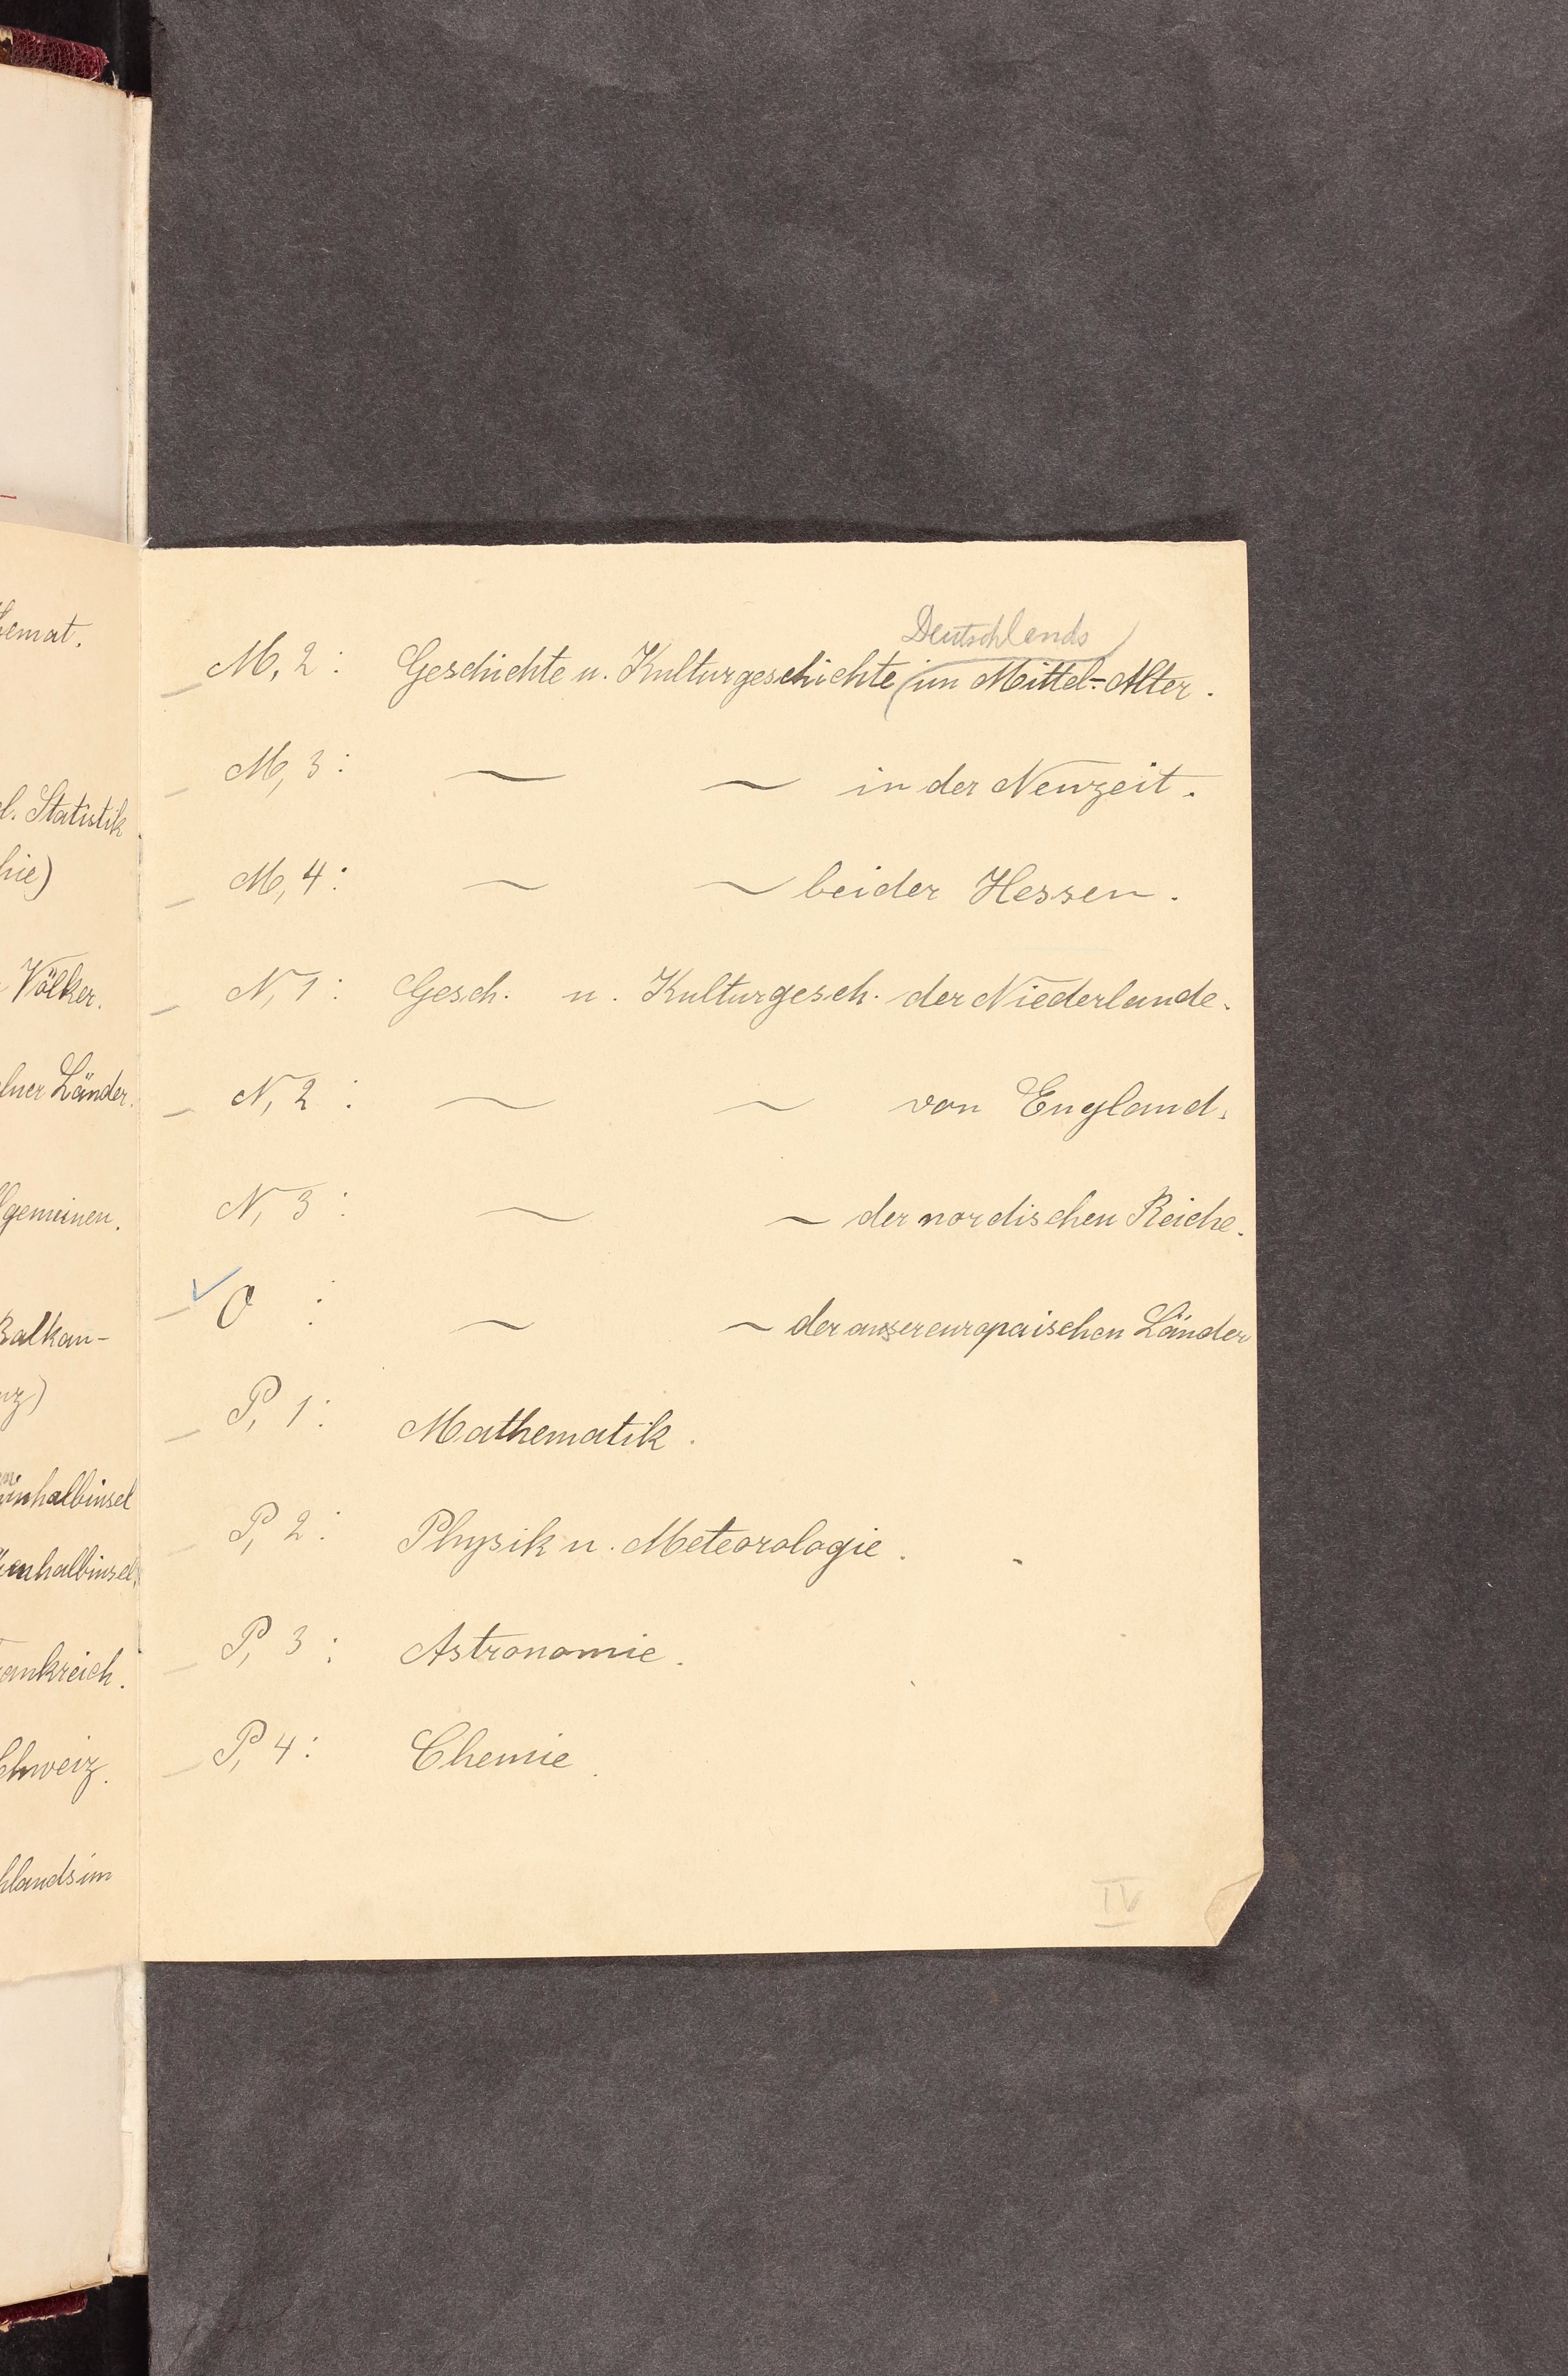 hemat.
l. Statistik
hie)
Völker.
lner Länder.
lgemeinen.
Balkan-
nz)
inhalbinsel
enhalbinsel.
ankreich.
chweiz.
hlands im
Deutschlands
M, 2 : Geschichte u. Kulturgeschichte im Mittel-Alter.
M, 3 : ~ ~ in der Neuzeit.
M, 4 : ~ ~ beider Hessen.
N, 1 : Gesch. u. Kulturgesch. der Niederlande.
N, 2 : ~ ~ von England.
N, 3 : ~ ~ der nordischen Reiche.
✓ O : ~ ~ der aussereuropaischen Länder
P, 1 : Mathematik.
P, 2 : Physik u. Meteorologie.
P, 3 : Astronomie.
P, 4 : Chemie.
IV